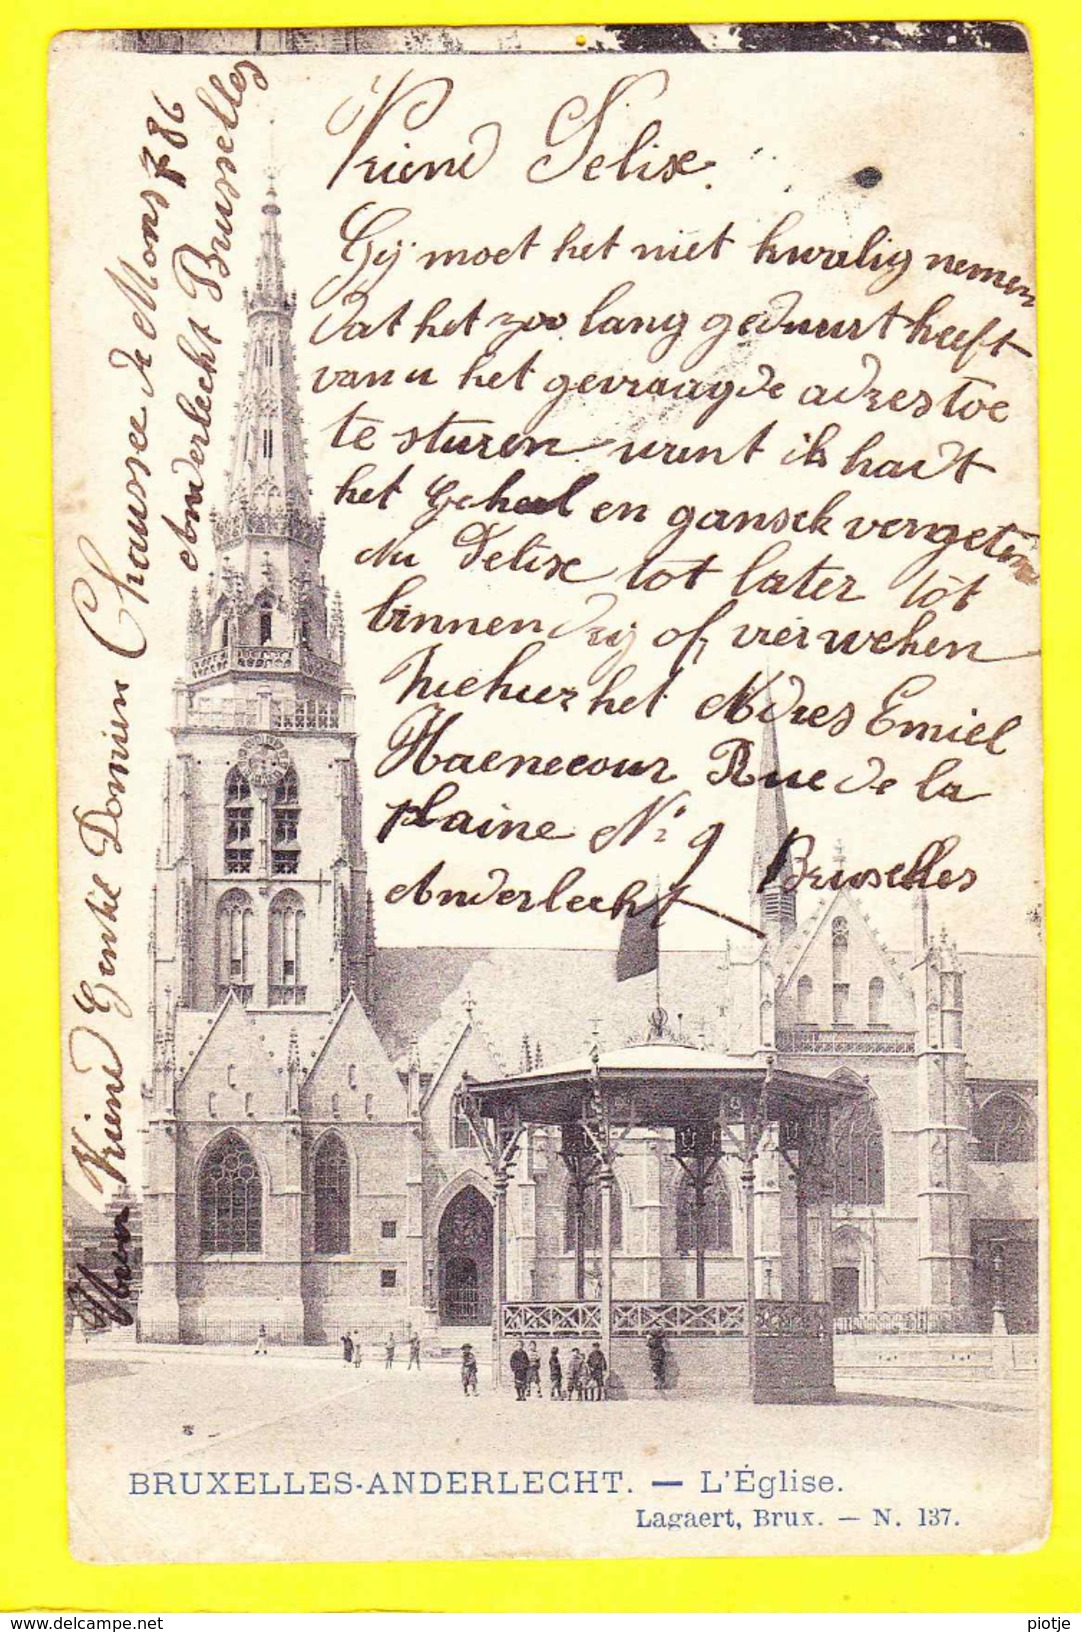 Vriend Felix.
Gij moet het niet kwalig nemen
dat het zoo lang geduurt heeft
van u het gevraagde adres toe
te sturen want ik hadt
het geheel en gansch vergeten
Nu Felix tot later tot
binnen drij of vier weken
hiehier het Adres Emiel
Haenecour Rue de la
plaine Nr 9
Anderlecht Bruxelles
Vriend Gentil Domien Chaussee de Mons 786
Anderlecht Brusselles
BRUXELLES-ANDERLECHT. — L'Église.
Lagaert, Brux. — N. 137.
www.delcampe.net
piotje